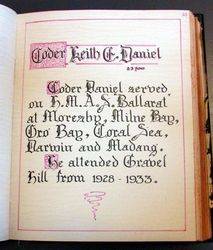 Coder Keith E. Daniel
Coder Daniel served
on H.M.A.S. Ballarat
at Moresby, Milne Bay,
Oro Bay, Coral Sea,
Darwin and Madang.
He attended Gravel
Hill from 1928 - 1933.